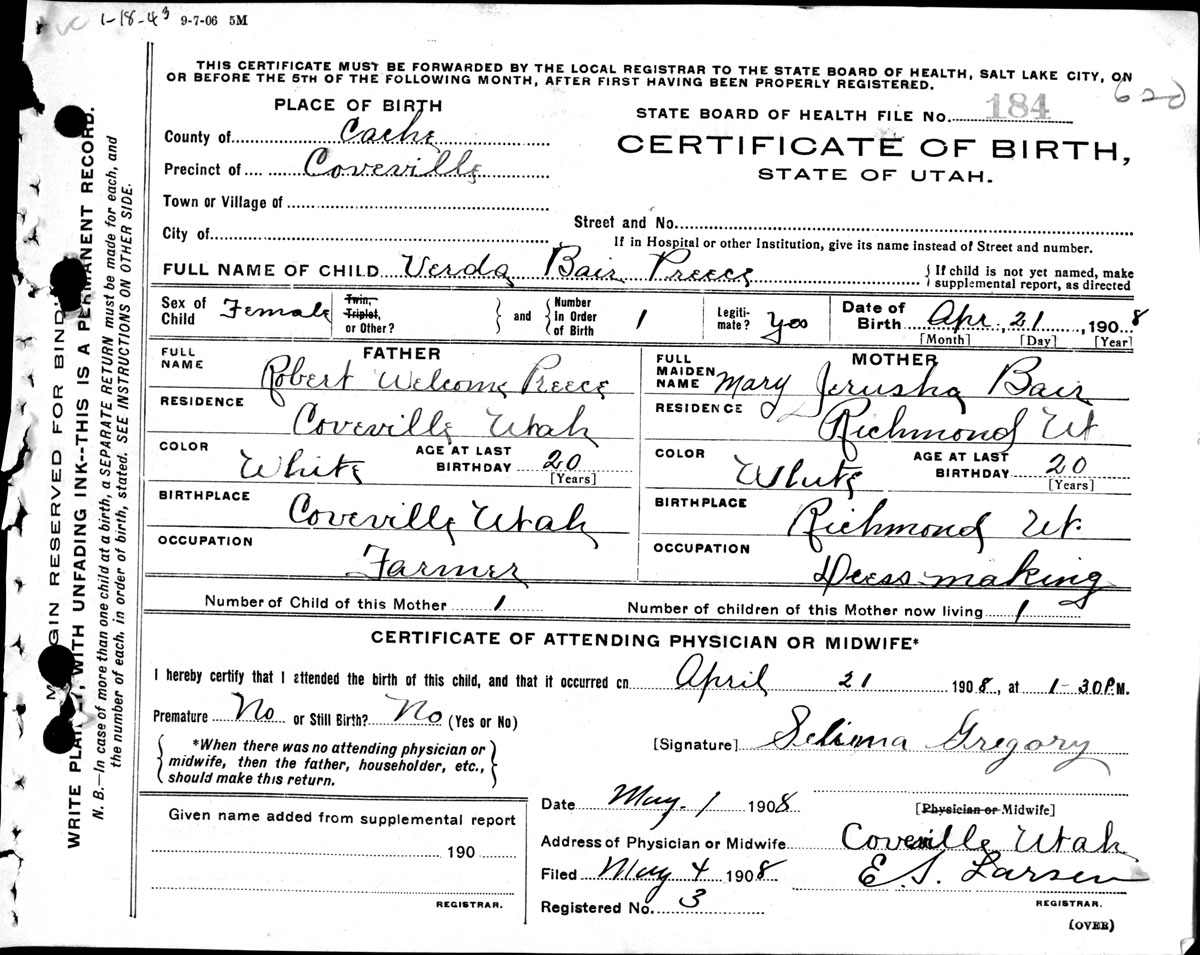 1-18-43 9-7-06 5M
THIS CERTIFICATE MUST BE FORWARDED BY THE LOCAL REGISTRAR TO THE STATE BOARD OF HEALTH, SALT LAKE CITY, ON
OR BEFORE THE 5TH OF THE FOLLOWING MONTH, AFTER FIRST HAVING BEEN PROPERLY REGISTERED.
PLACE OF BIRTH
County of Cache
Precinct of Coveville
Town or Village of
City of
STATE BOARD OF HEALTH FILE No. 184
CERTIFICATE OF BIRTH,
STATE OF UTAH.
Street and No.
If in Hospital or other Institution, give its name instead of Street and number.
FULL NAME OF CHILD Verda Bair Preece
{ If child is not yet named, make
supplemental report, as directed
Sex of Child Female
Twin, Triplet, or Other?
and
Number In Order of Birth 1
Legiti-mate? yes
Date of Birth Apr. 21, 1908
[Month] [Day] [Year]
FATHER
FULL NAME Robert Welcome Preece
RESIDENCE Coveville Utah
COLOR White AGE AT LAST BIRTHDAY 20 [Years]
BIRTHPLACE Coveville Utah
OCCUPATION Farmer
MOTHER
FULL MAIDEN NAME Mary Jerusha Bair
RESIDENCE Richmond Ut
COLOR White AGE AT LAST BIRTHDAY 20 [Years]
BIRTHPLACE Richmond Ut.
OCCUPATION Dress making
Number of Child of this Mother 1 Number of children of this Mother now living 1
CERTIFICATE OF ATTENDING PHYSICIAN OR MIDWIFE*
I hereby certify that I attended the birth of this child, and that it occurred on April 21 1908, at 1-30 P.M.
Premature No or Still Birth? No (Yes or No)
*When there was no attending physician or
midwife, then the father, householder, etc.,
should make this return.
[Signature] Selima Gregory
[Physician or Midwife]
Date May. 1 1908
Address of Physician or Midwife Coveville Utah
Filed May 4 1908 E. S. Larsen
REGISTRAR.
Registered No. 3
(OVER)
Given name added from supplemental report
190
REGISTRAR.
MARGIN RESERVED FOR BINDING
WRITE PLAINLY, WITH UNFADING INK--THIS IS A PERMANENT RECORD.
N. B.—In case of more than one child at a birth, a SEPARATE RETURN must be made for each, and
the number of each, in order of birth, stated. SEE INSTRUCTIONS ON OTHER SIDE.